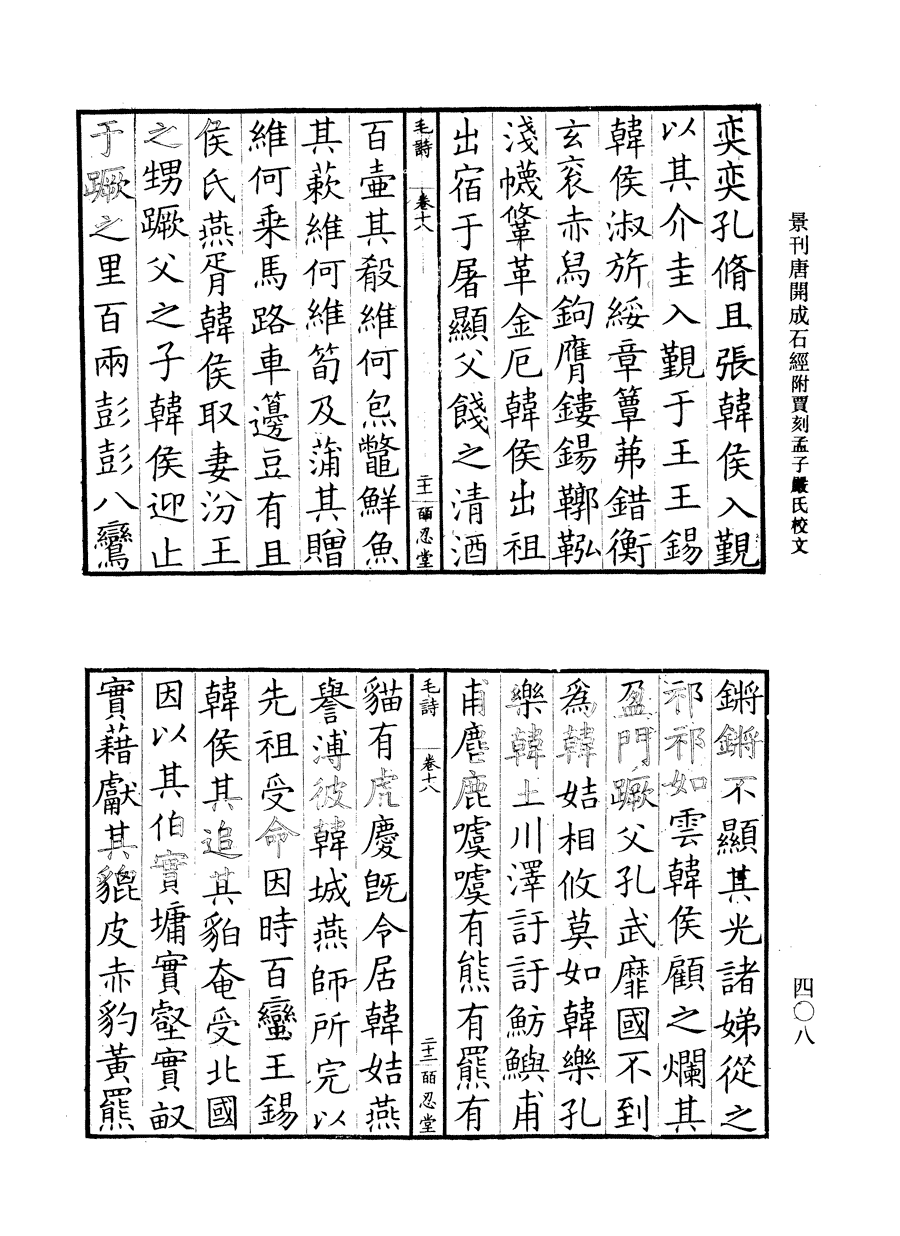 景刊唐開成石經附賈刻孟子嚴氏校文
奕奕孔脩且張韓侯入覲
以其介圭入覲于王王錫
韓侯淑旂綏章簟茀錯衡
玄衮赤舄鉤膺鏤鍚鞹鞃
淺幭鞗革金厄韓侯出祖
出宿于屠顯父餞之清酒
毛詩 卷十八 二十一 皕忍堂
百壷其殽維何炰鼈鮮魚
其蔌維何維筍及蒲其贈
維何乗馬路車籩豆有且
侯氏燕胥韓侯取妻汾王
之甥蹶父之子韓侯迎止
于蹶之里百兩彭彭八鸞
鏘鏘不顯其光諸娣從之
祁祁如雲韓侯顧之爛其
盈門蹶父孔武靡國不到
爲韓姞相攸莫如韓樂孔
樂韓土川澤訏訏魴鱮甫
甫麀鹿噳噳有熊有羆有
毛詩 卷十八 二十二 皕忍堂
貓有虎慶旣令居韓姞燕
譽溥彼韓城燕師所完以
先祖受命因時百蠻王錫
韓侯其追其貊奄受北國
因以其伯實墉實壑實畝
實藉獻其貔皮赤豹黃羆
四〇八